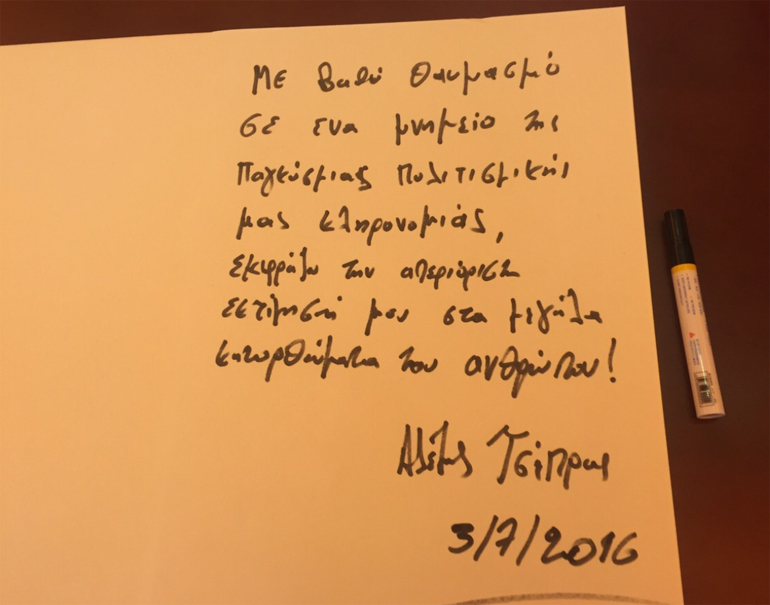 Με βαθύ θαυμασμό
σε ενα μνημείο της
Παγκόσμιας Πολιτισμικής
μας κληρονομιάς,
εκφράζω την απεριόριστη
εκτίμησή μου στα μεγάλα
κατορθώματα του ανθρώπου!
Αλέξης Τσίπρας
3/7/2016